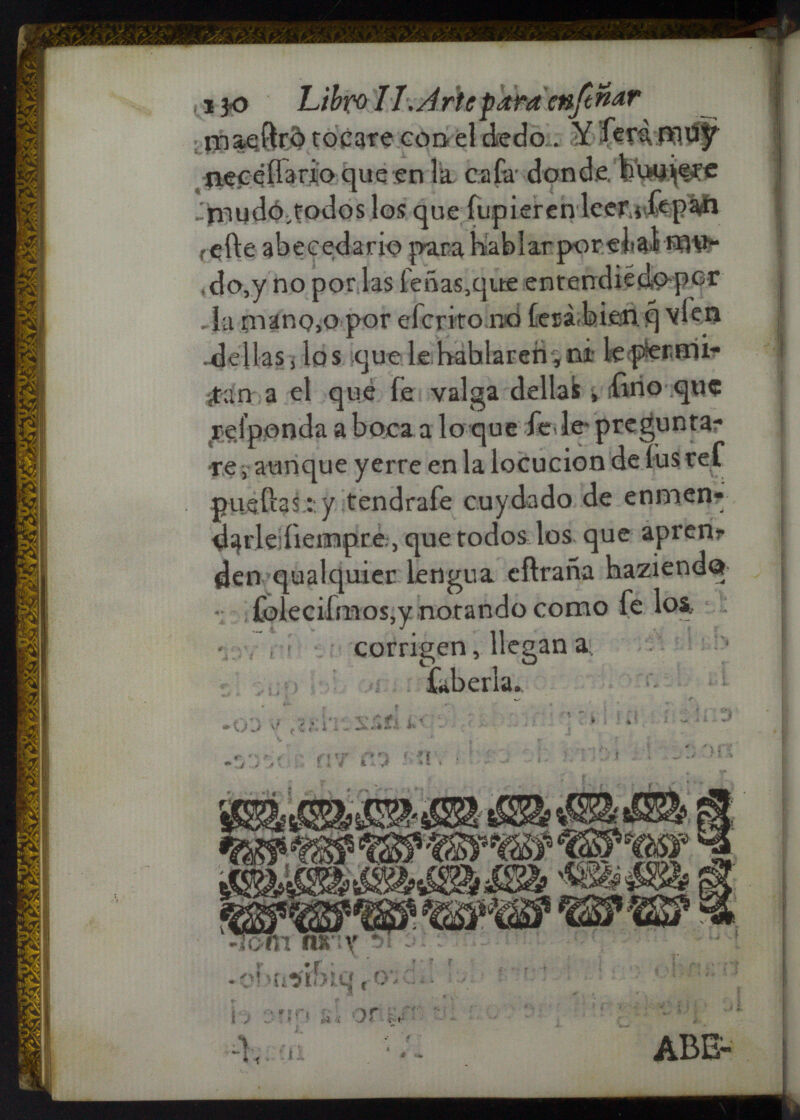 130 Libro II. Arte para enſeñar
maeſtro tocare con el dedo. Y ſerà muy
neceſſario que en la caſa donde huuiere
mudo, todos los que ſupieren leer, ſepan
eſte abecedario para hablar por el al mu-
do, y no por las ſeñas, que entendiẽdo por
la mano, o por eſcrito no ſerà bien q̃ vſen
dellas, los que le hablaren, ni le permi-
tan a el que ſe valga dellas, ſino que
reſponda a boca a lo que ſe le pregunta-
re, aunque yerre en la locucion de ſus reſ
pueſtas: y tendraſe cuydado de enmen-
darle ſiempre, que todos los que apren-
den qualquier lengua eſtraña haziendo
ſoleciſmos, y notando como ſe los
corrigen, llegan a
ſaberla.
ABE-